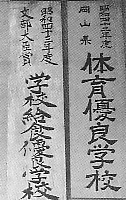 昭和四十二年度
岡山県
体育優良学校
昭和四十三年度
文部大臣賞
学校給食優良学校